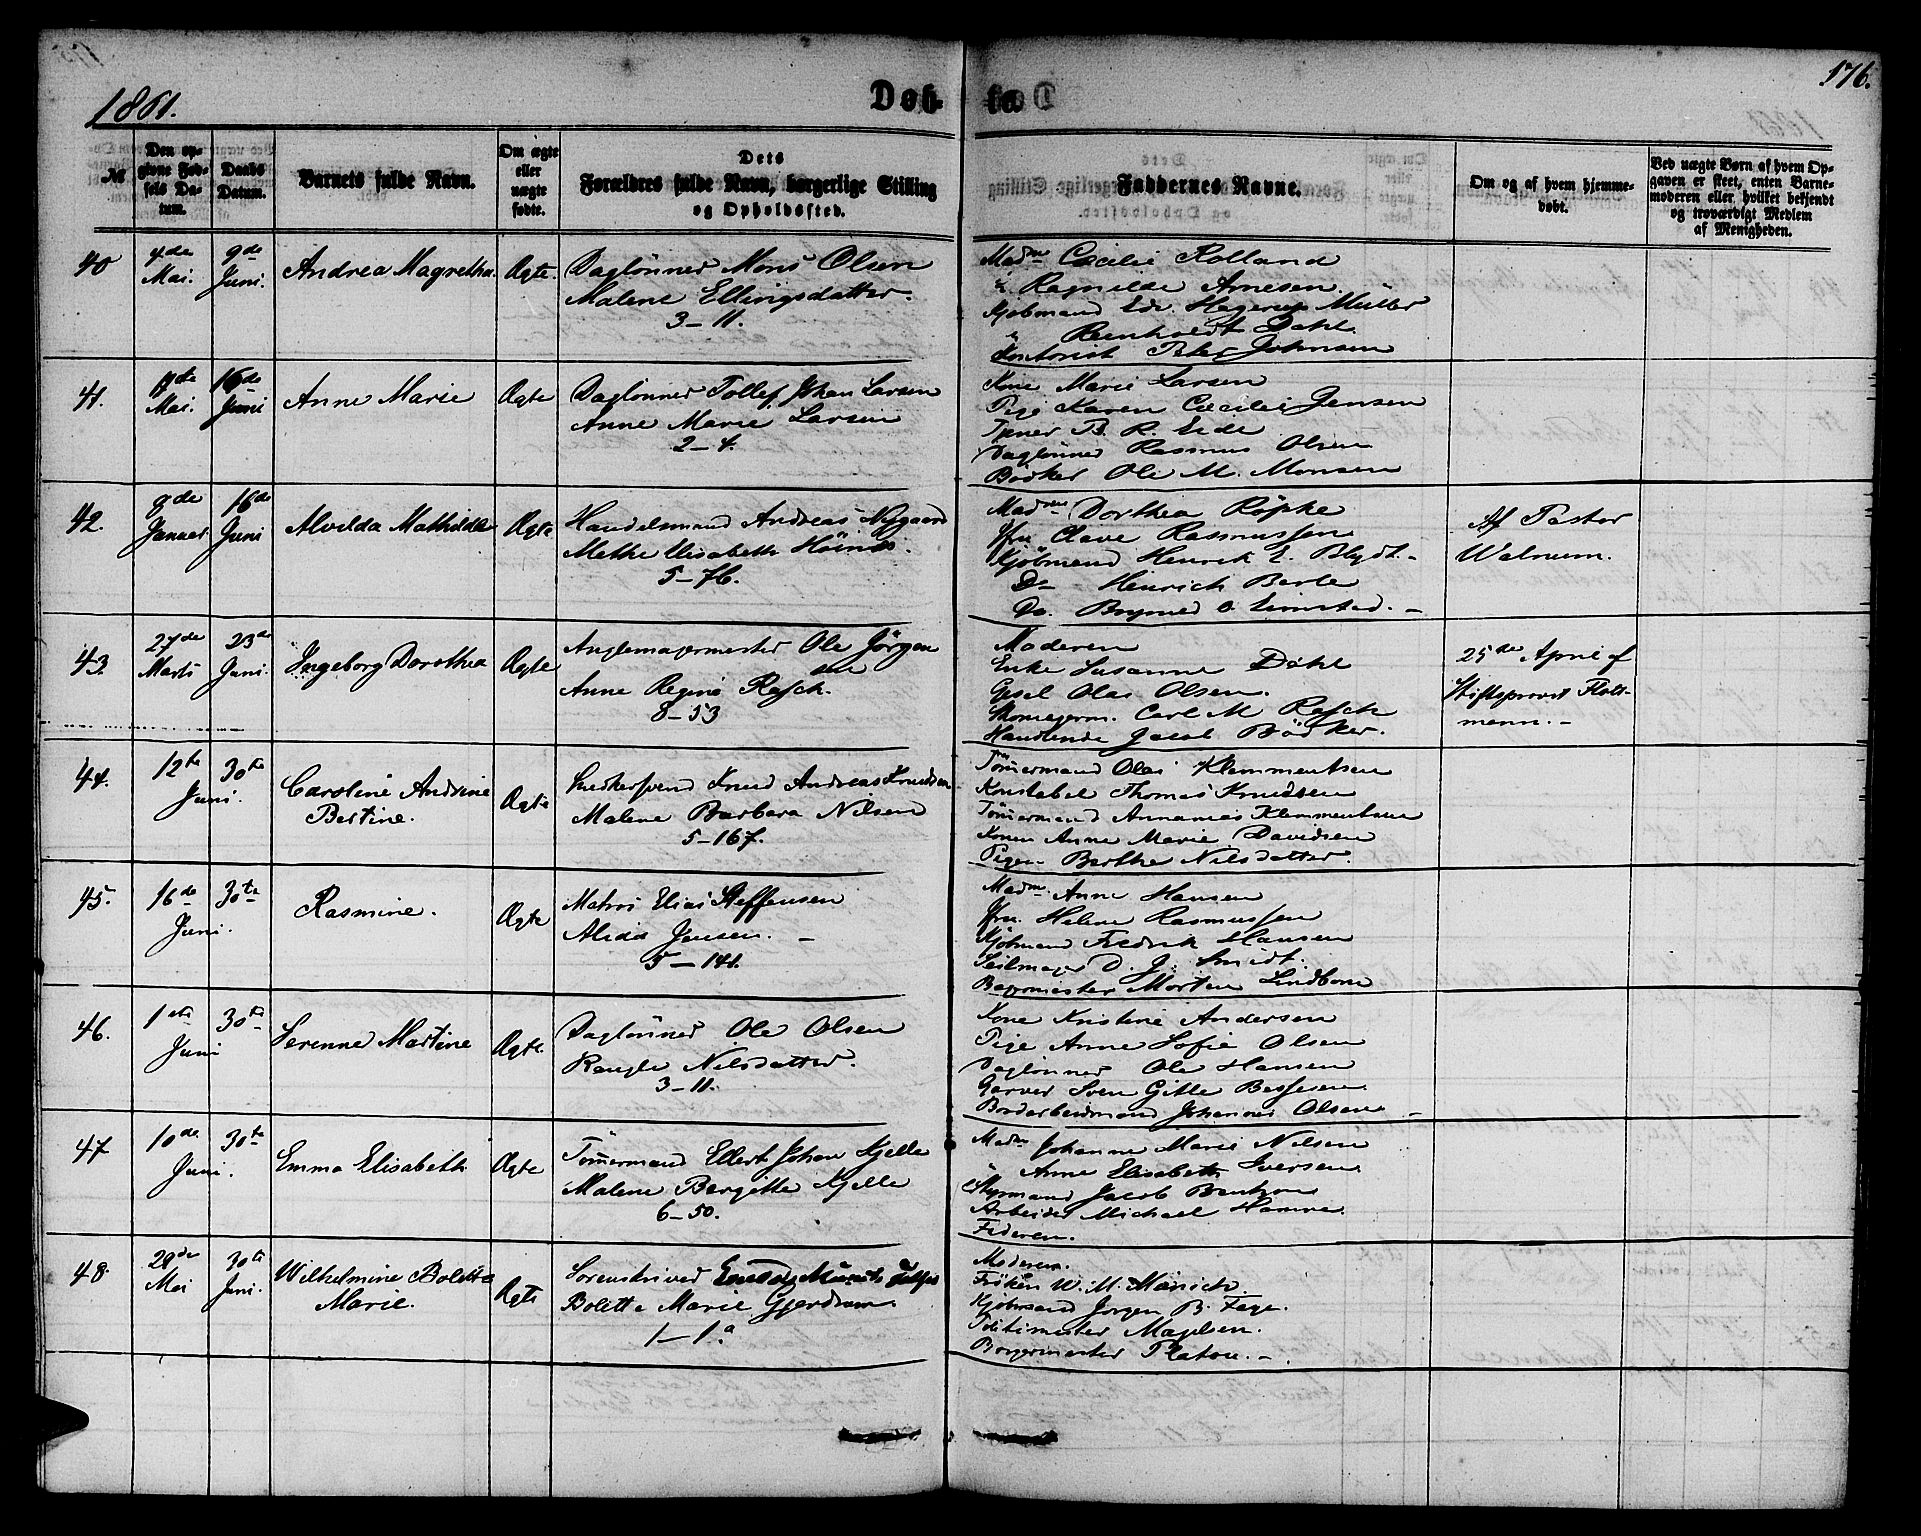 1861.
Døb-
te
176.
№
Den op-
givne Fød-
sels Da-
tum.
Daabs
Datum.
Barnets fulde Navn.
Om ægte
eller
uægte
fødte.
Dets
Forældres fulde Navn, borgerlige Stilling
og Opholdssted.
Faddernes Navne.
Om og af hvem hjemme-
døbt.
Ved uægte Børn af hvem Op-
gaven er skeet, enten Barne-
moderen eller hvilket bekjendt
og troværdigt Medlem
af Menigheden.
40
4de Mai.
9de Juni.
Andrea Magretha
Ægte.
Daglønner Mons Olsen
Malene Ellingsdatter.
3-11.
Madme Cæcilie Rolland
" Ragnilde Arnesen.
Kjøbmand Edv. Hagerup Müller
" Reinholdt Dahl.
Kontorist Peter Johnsen
41.
Mai.
16de Juni
Anne Marie
Ægte
Daglønner Tollef Johan Larsen
Anne Marie Larsen
2-4.
Kone Marie Larsen
Pige Karen Cæcilie Jensen
B. R. Eide
Daglønner Rasmus Olsen
Bødker Ole M. Monsen
42.
Januar
16de Juni
Alvilda Mathilde
Ægte
Handelsmand Andreas Nygaard
Methe Elisabeth
5-76.
Madme Dorthea Röpke
Jfru Clave Rasmussen
Kjøbmand Henrik E. Blydt.
Do Heinrich Berle
Do. Brynild O
Af Pastor
Walnum.
43.
27de Marts
23de Juni.
Ingeborg Dorothea
Ægte
Anglemagermester Ole Jörgen
sen
Anne Regine Rasch.
8-53
Moderen
Enke Susanne Dahl
Gesel Olai Olsen.
Skomagerm. Carl M Rasch
Handlende Jacob Bödker.
25de April af
Stiftsprovst Flott-
mann.-
44.
12te Juni.
30te
Caroline Andrine
Bertine.
Ægte
Knud Andreas Knudsen
Malene Barbara Nilsen
5-167.
Tømermand Olai Klemmentsen
Konstabel Thomas Knudsen
Tømermand Annanias Klemmentsen
Konen Anne Marie Davidsen
Pigen Berthe Nilsdatter.
45.
16de Juni.
30te
Rasmine.
Ægte
Matros Elias Steffensen
Alida Jensen.
5-141.
Madme Anne Hansen
Jfru. Helene Rasmussen
Kjøbmand Fredrik Hansen
Seilmager D. J. Smidt.
Bagermester Morten Lindbom
46.
1ste Juni
30te
Serenne Martine
Ægte.
Daglønner Ole Olsen
Nilsdatter.
3-11.
Kone Kristine Andersen
Pige Anne Sofie Olsen
Daglønner Ole Hansen
Garver Sven Gitle Bessesen
Johannes Olsen
47
10de Juni.
30te
Emma Elisabeth
Ægte
Tømermand Ellert Johan Kjelle
Malene Bergitte Kjelle
6-50.
Madme Johanne Marie Nilsen
" Anne Elisabeth Iversen
Styrmand Jacob Bentzon
Arbeider Michael Hamre
Faderen.
48.
Mai
30te Juni.
Wilhelmine Bolette
Marie.
Ægte
Sorenskriver
Bolette Marie Gjerdrum
1-1a
Moderen.
Frøken W. M. Münich.
Kjøbmand Jørgen B. Faye.
Politimester Magelsen.
Borgermester Platou.-